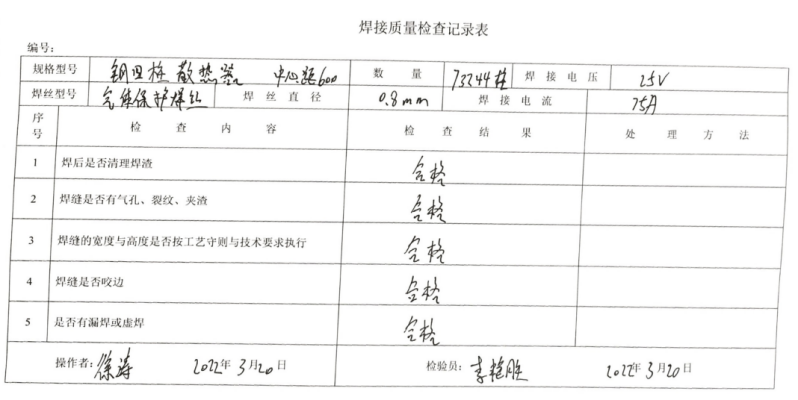 焊接质量检查记录表
编号:
规格型号 钢四柱散热器 中心距600 数量 73244柱 焊接电压 25V
焊丝型号 气体保护焊丝 焊丝直径 0.8mm 焊接电流 75A
序号 检查内容 检查结果 处理方法
1 焊后是否清理焊渣 合格
2 焊缝是否有气孔、裂纹、夹渣 合格
3 焊缝的宽度与高度是否按工艺守则与技术要求执行 合格
4 焊缝是否咬边 合格
5 是否有漏焊或虚焊 合格
操作者:徐涛 2022年3月20日 检验员:李艳胜 2022年3月20日